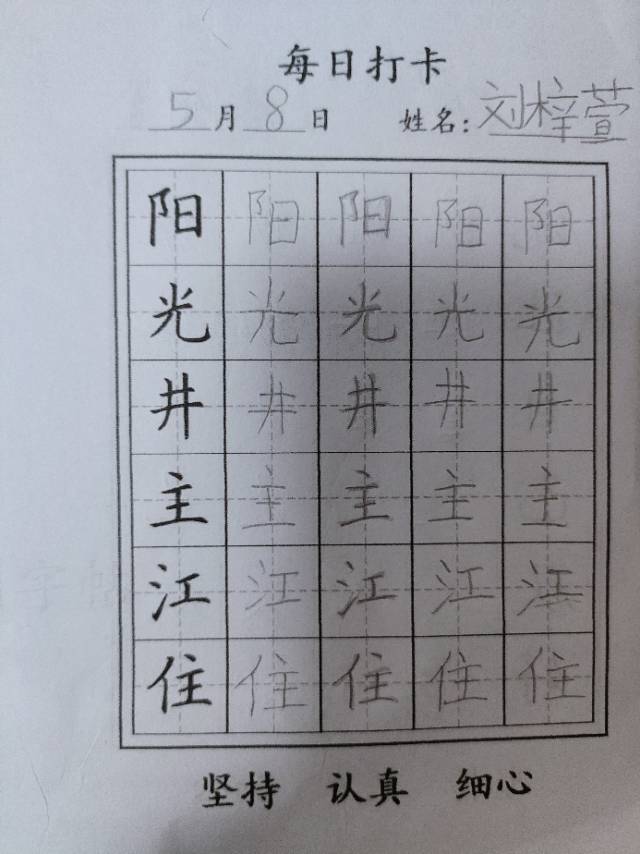 每日打卡
5月8日 姓名：刘梓萱
阳 阳 阳 阳 阳
光 光 光 光 光
井 井 井 井 井
主 主 主 主 主
江 江 江 江 江
住 住 住 住 住
坚持 认真 细心